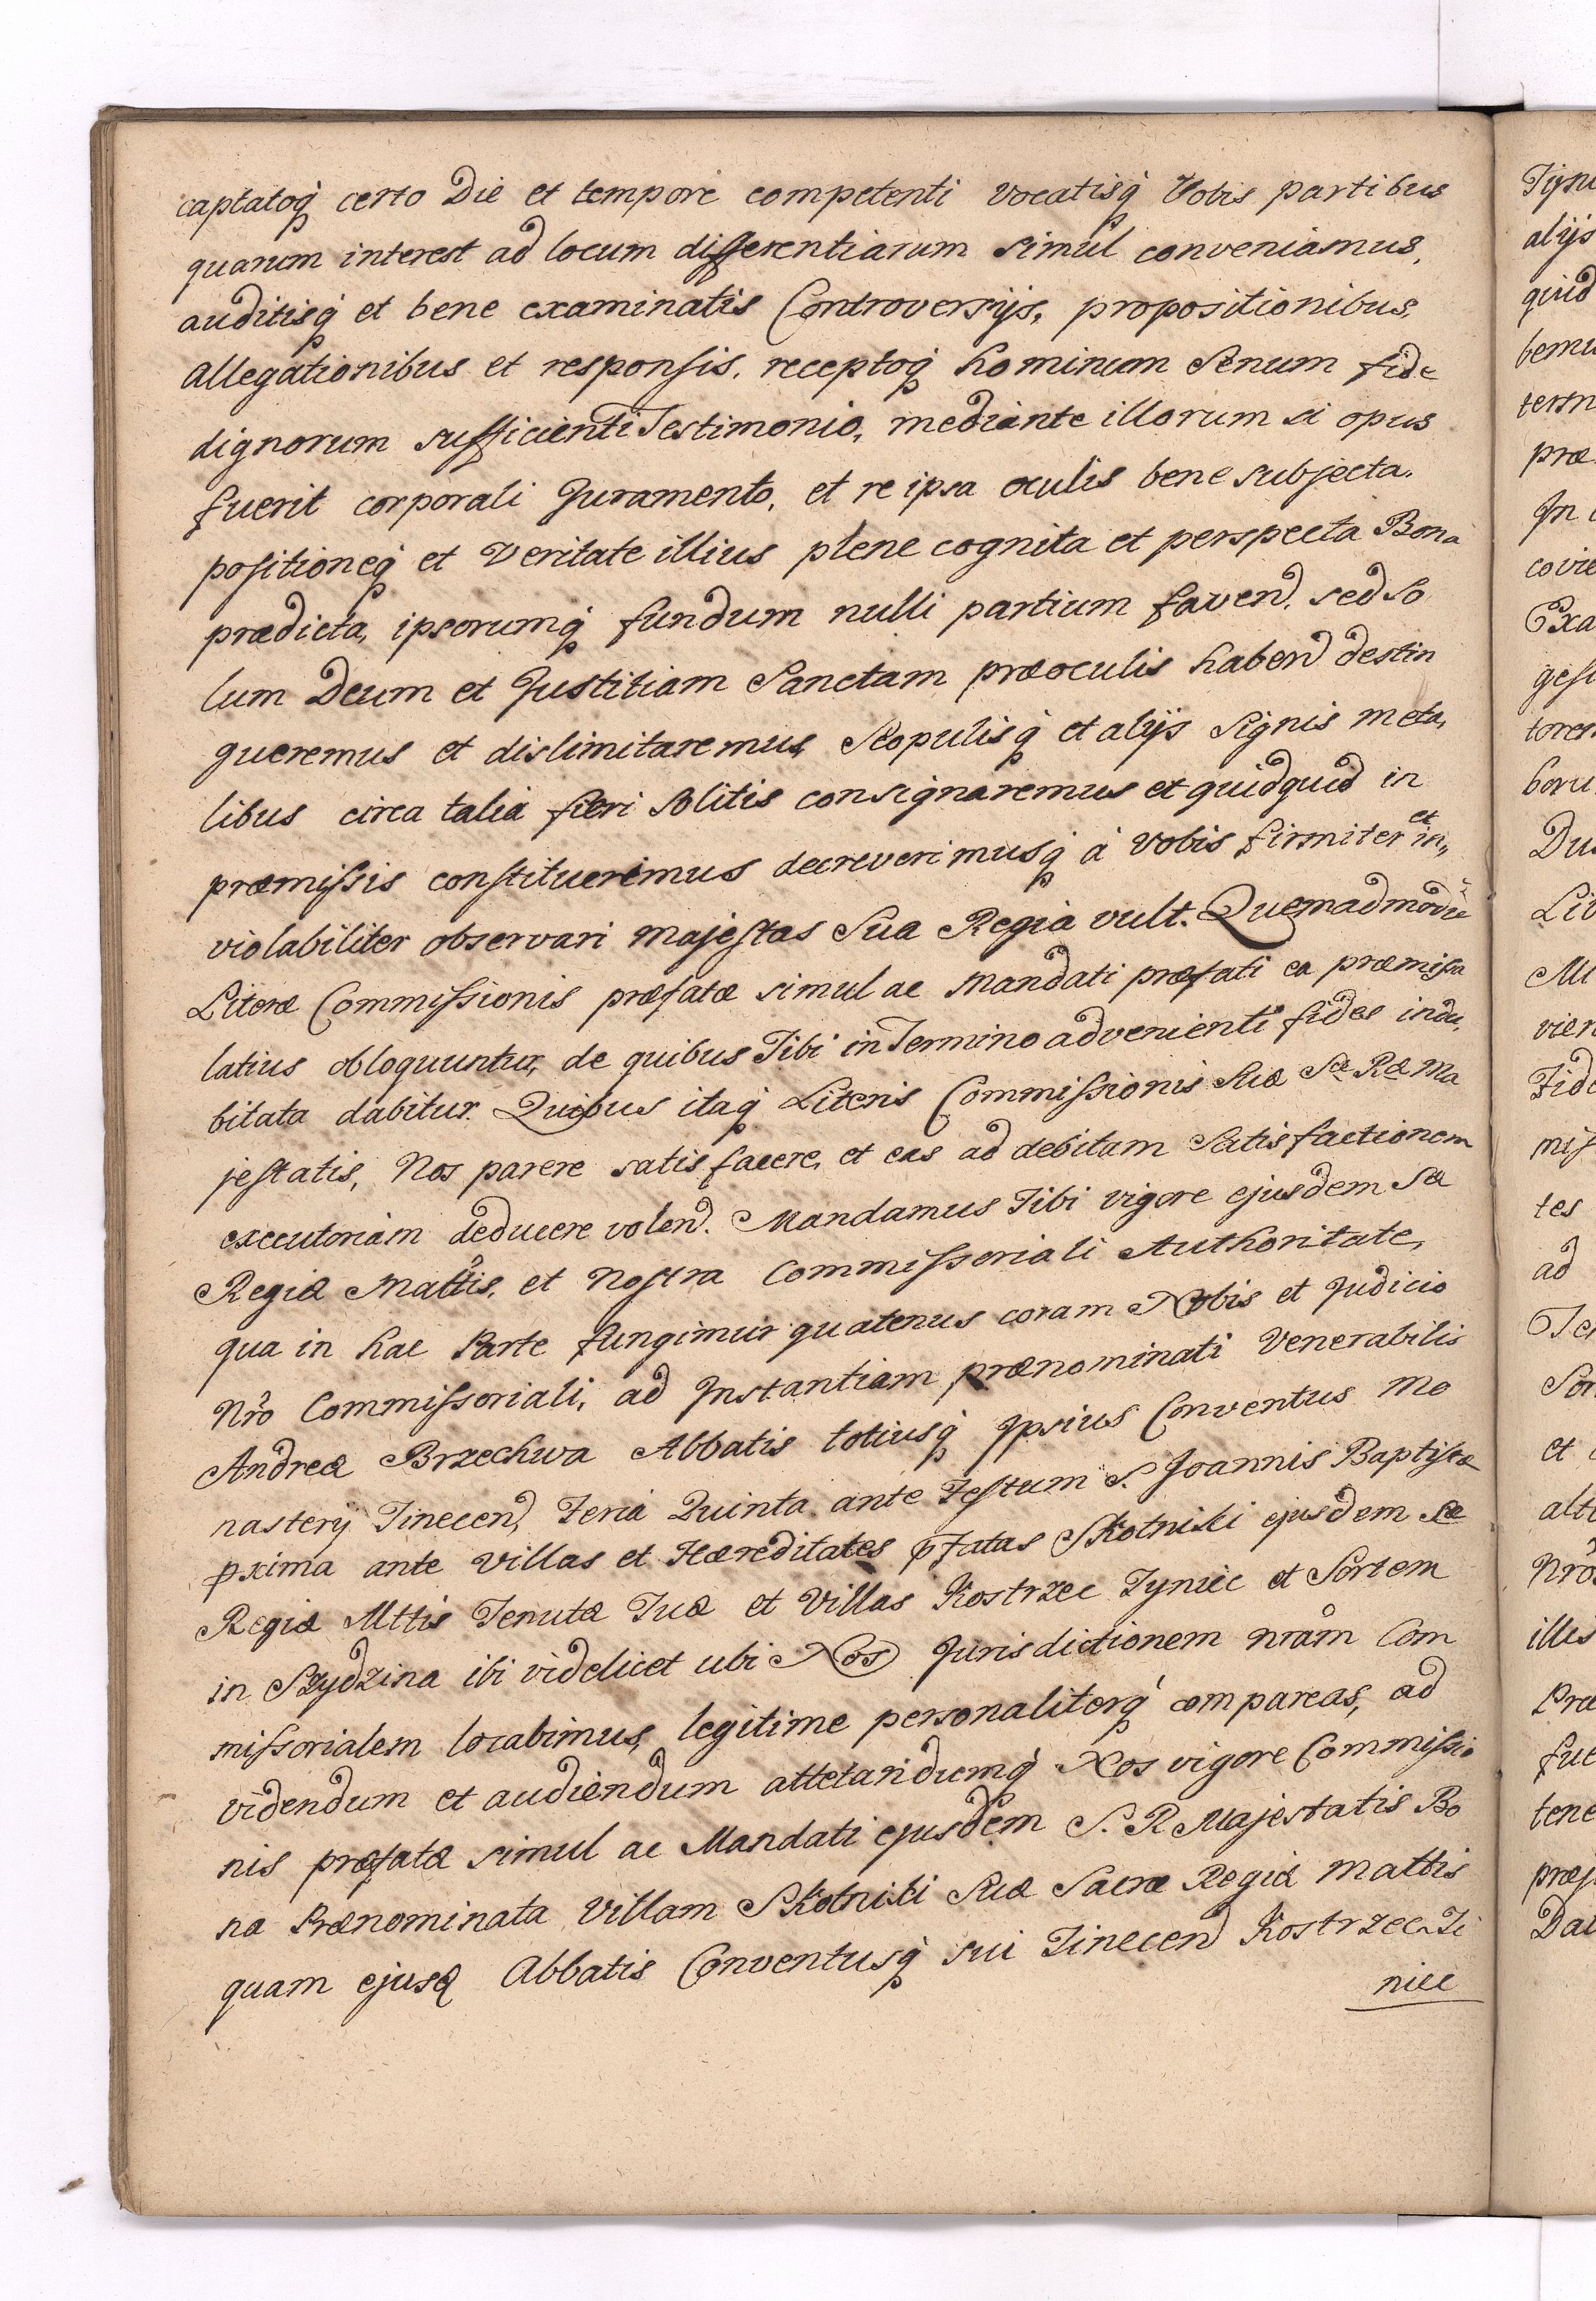 captatoq́ certo Die et tempore competenti vocatisq́ Vobis partibus
quarum interest ad locum differentiarum simul conveniamus,
auditisq́ et bene examinatis Controversijs, propositionibus,
allegationibus et responsis, receptoq́ hominum Senum fide
dignorum sufficienti Testimonio, mediante illorum si opus
fuerit corporali Juramento, et re ipsa oculis bene subjecta,
positioneq́ et Veritate illius plene cognita et perspecta Bona
prædicta, ipsorumq́ fundum nulli partium favend, sed So
lum Deum et Justitiam Sanctam præoculis habend destin
gueremus et dislimitaremus, Scopulisq́ et alijs Signis meta,
libus circa talia fieri Solitis consignaremus et quidquid in
præmissis constituerimus decreverimusq́ à Vobis firmiter et in„
violabiliter observari Majestas Sua Regia vult. Quemadmodũ
Literæ Commissionis præfatæ simul ac Mandati præfati ea præmissa
latius obloquuntur, de quibus Tibi in Termino advenienti fides indu,
bitata dabitur. Quibus itaq́ Literis Commissionis Suæ Sæ Ræ Ma
jestatis, Nos parere satisfacere, et eas ad debitam Satisfactionem
executoriam deducere volend. Mandamus Tibi vigore ejusdem Sæ
Regiæ Mattis, et Nostra Commissoriali Authoritate,
qua in hac Parte fungimur quatenus coram Nobis et Judicio
Nrõ Commissoriali, ad Instantiam prænominati Venerabilis
Andreæ Brzechwa Abbatis totiusq́ Ipsius Conventus Mo
nasterij Tinecen, Feria Quinta ante Festum S. Joannis Baptistæ
pxima ante Villas et Hæreditates pfatas Skotniki ejusdem Sæ
Regiæ Mttis Tenutæ Tuæ et Villas Kostrzec Tyniec et Sortem
in Szydzina ibi videlicet ubi Nos Jurisdictionem nram Com
missorialem locabimus, legitime personaliterq́ compareas, ad
videndum et audiendum attetandumq́ Nos vigore Commissio
nis præfatæ simul ac Mandati ejusdem S. R Majestatis Bo
na Prænominata Villam Skotniki Suæ Sacræ Regiæ Mattis
quam ejusq Abbatis Conventusq́ sui Tinecen Kostrzec Ti
niec